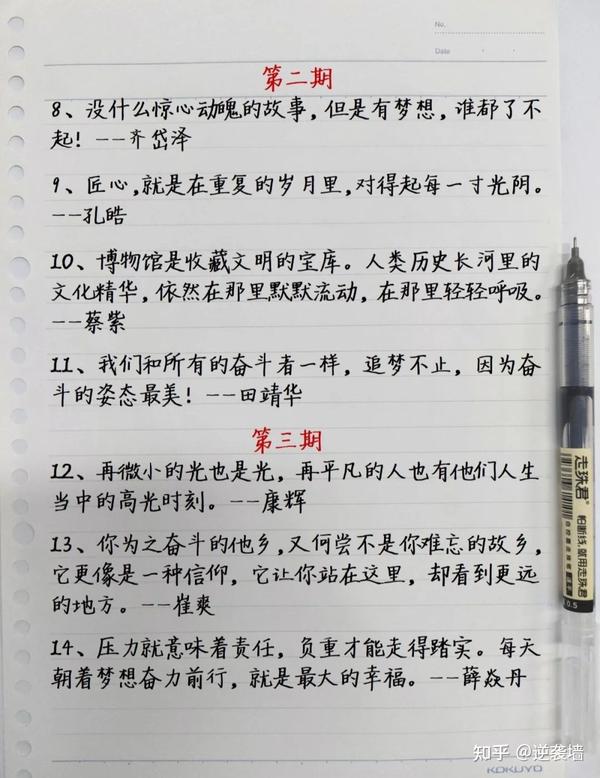 No.
Date
第二期
8、没什么惊心动魄的故事，但是有梦想，谁都了不
起！--齐岱泽
9、匠心，就是在重复的岁月里，对得起每一寸光阴。
--孔皓
10、博物馆是收藏文明的宝库。人类历史长河里的
文化精华，依然在那里默默流动，在那里轻轻呼吸。
--蔡紫
11、我们和所有的奋斗者一样，追梦不止，因为奋
斗的姿态最美！--田靖华
第三期
12、再微小的光也是光，再平凡的人也有他们人生
当中的高光时刻。--康辉
13、你为之奋斗的他乡，又何尝不是你难忘的故乡，
它更像是一种信仰，它让你站在这里，却看到更远
的地方。--崔爽
14、压力就意味着责任，负重才能走得踏实。每天
朝着梦想奋力前行，就是最大的幸福。--薛焱丹
走珠君
怕断线，就用走珠君
0.5
KOKUYO
知乎 @逆袭墙